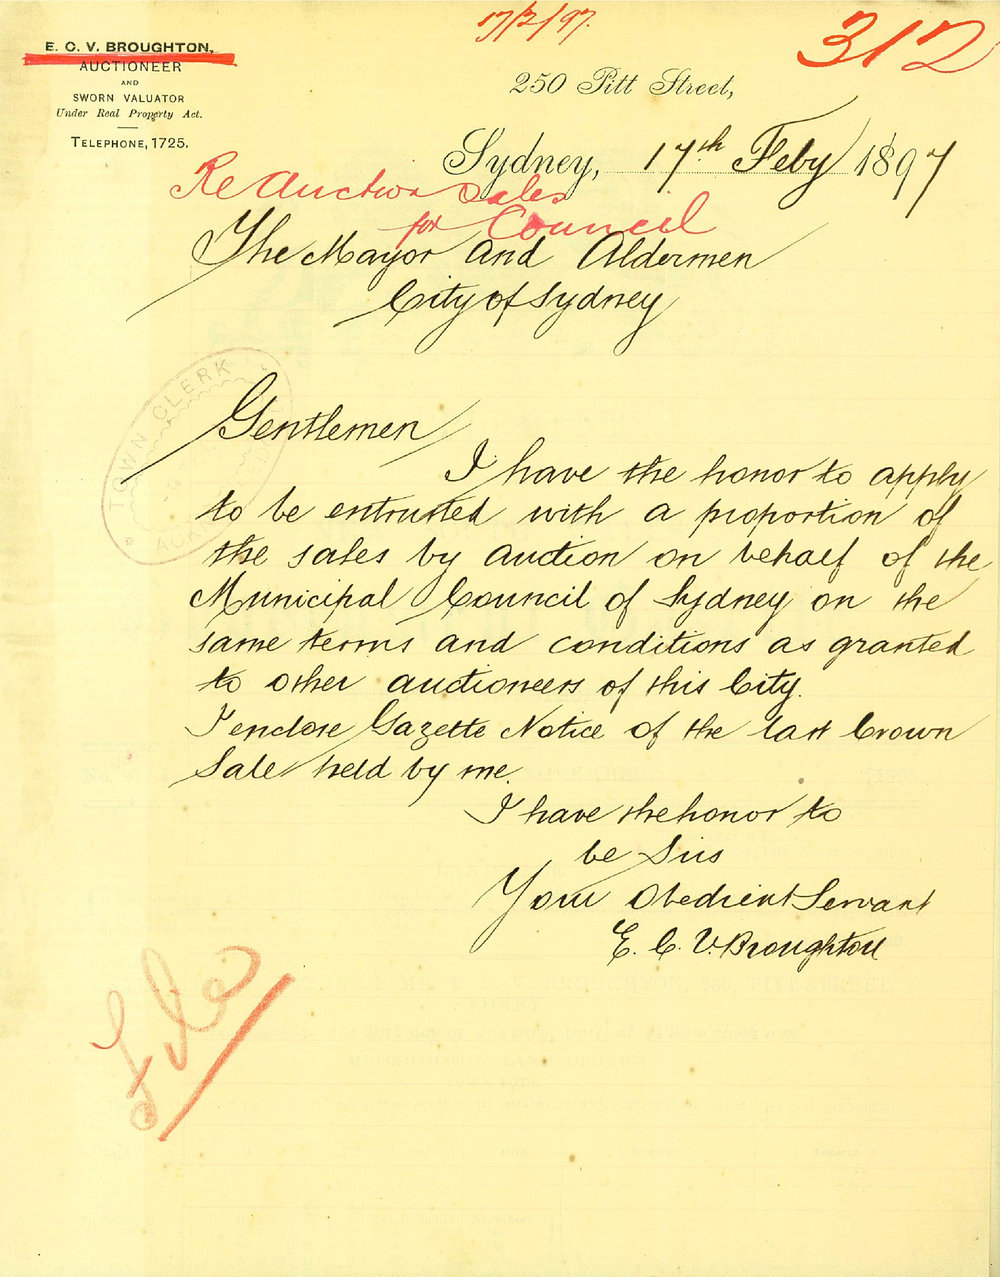 17/2/97.
312
E. C. V. BROUGHTON,
AUCTIONEER
AND
SWORN VALUATOR
Under Real Property Act.
TELEPHONE, 1725.
250 Pitt Street,
Sydney, 17th Feby 1897
Re Auction Sales
for Council
The Mayor and Aldermen
City of Sydney
TOWN CLERK
Gentlemen
I have the honor to apply
to be entrusted with a proportion of
the sales by auction on behalf of the
Municipal Council of Sydney on the
same terms and conditions as granted
to other auctioneers of this City.
I enclose Gazette Notice of the last Crown
Sale held by me.
I have the honor to
be Sirs
Your Obedient Servant
E. C. V. Broughton
File